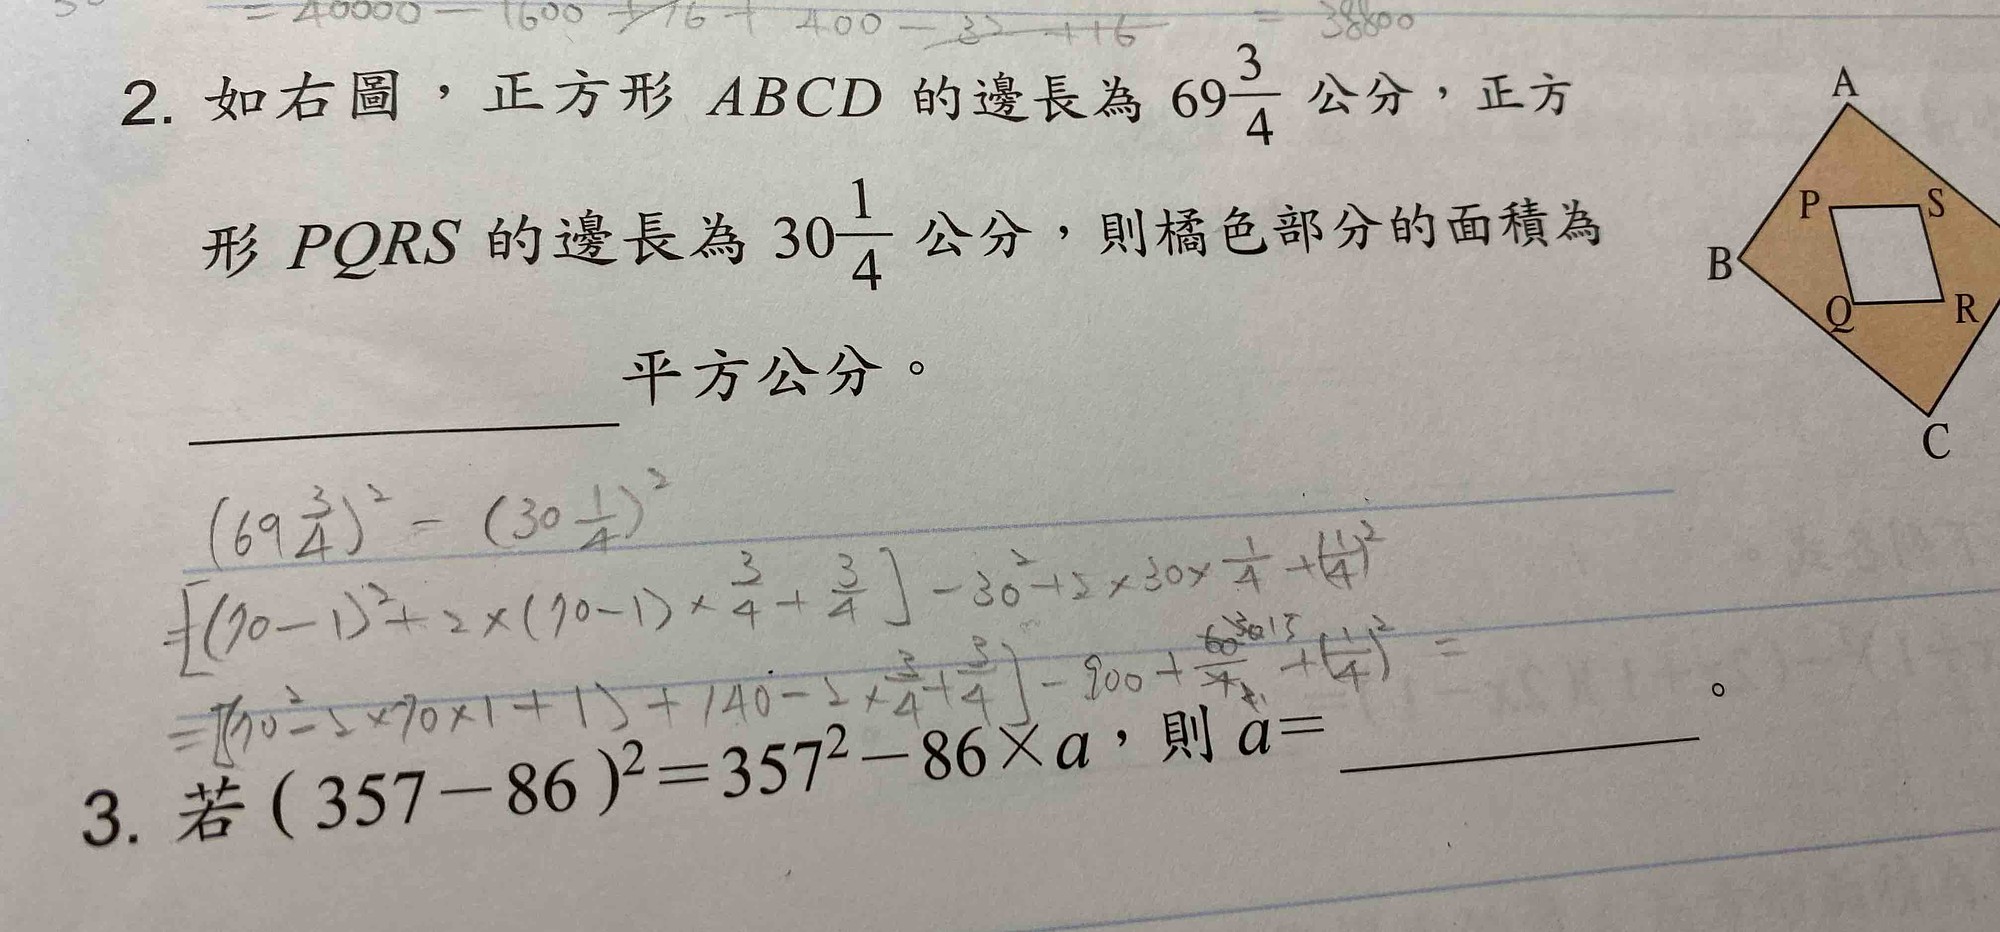 = 40000 - 1600 + 16 + 400 - 32 + 16 = 38800
2. 如右圖，正方形 ABCD 的邊長為 69 3/4 公分，正方
形 PQRS 的邊長為 30 1/4 公分，則橘色部分的面積為
平方公分。
A
P S
B
Q R
C
(69 3/4)² - (30 1/4)²
=[(70-1)²+2×(70-1)×3/4+3/4]-30²+2×30×1/4+(1/4)²
3. 若(357-86)²=357²-86×a，則 a= 。